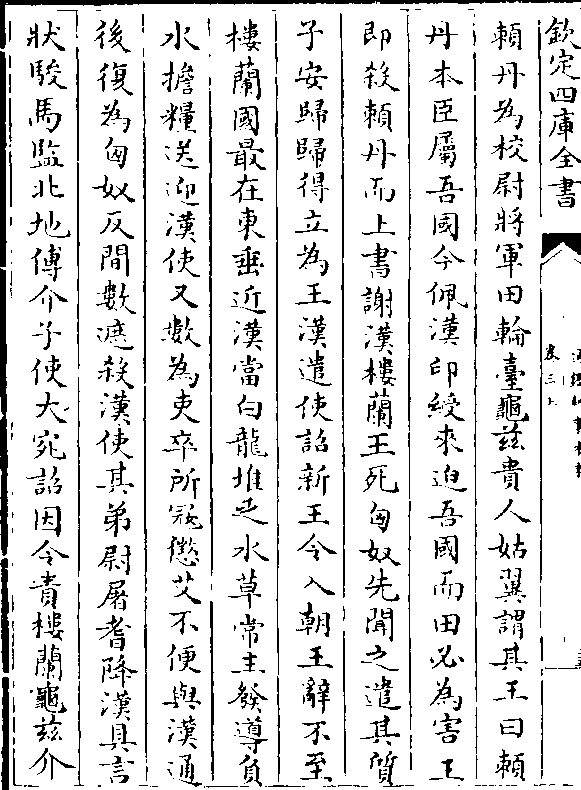 欽定四庫全書
賴丹為校尉將軍田輪臺龜茲貴人姑翼謂其王曰賴
丹本臣屬吾國今佩漢印綬來迫吾國而田必為害王
即殺賴丹而上書謝漢樓蘭王死匈奴先聞之遣其質
子安歸歸得立為王漢遣使詔新王令入朝王辭不至
樓蘭國最在東垂近漢當白龍堆乏水草常主發導負
水擔糧送迎漢使又數為吏卒所寇懲艾不便與漢通
後復為匈奴反間數遮殺漢使其弟尉屠耆降漢具言
狀駿馬監北地傅介子使大宛詔因令責樓蘭龜茲介